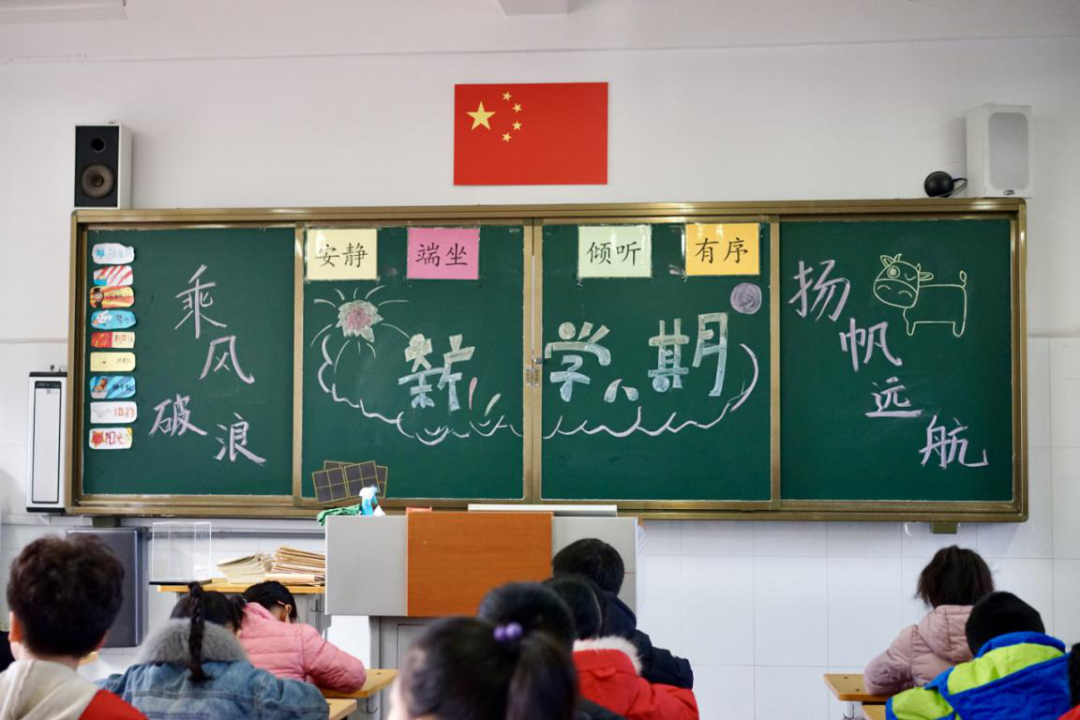 安静
端坐
倾听
有序
乘风
破浪
新学期
扬帆
远航